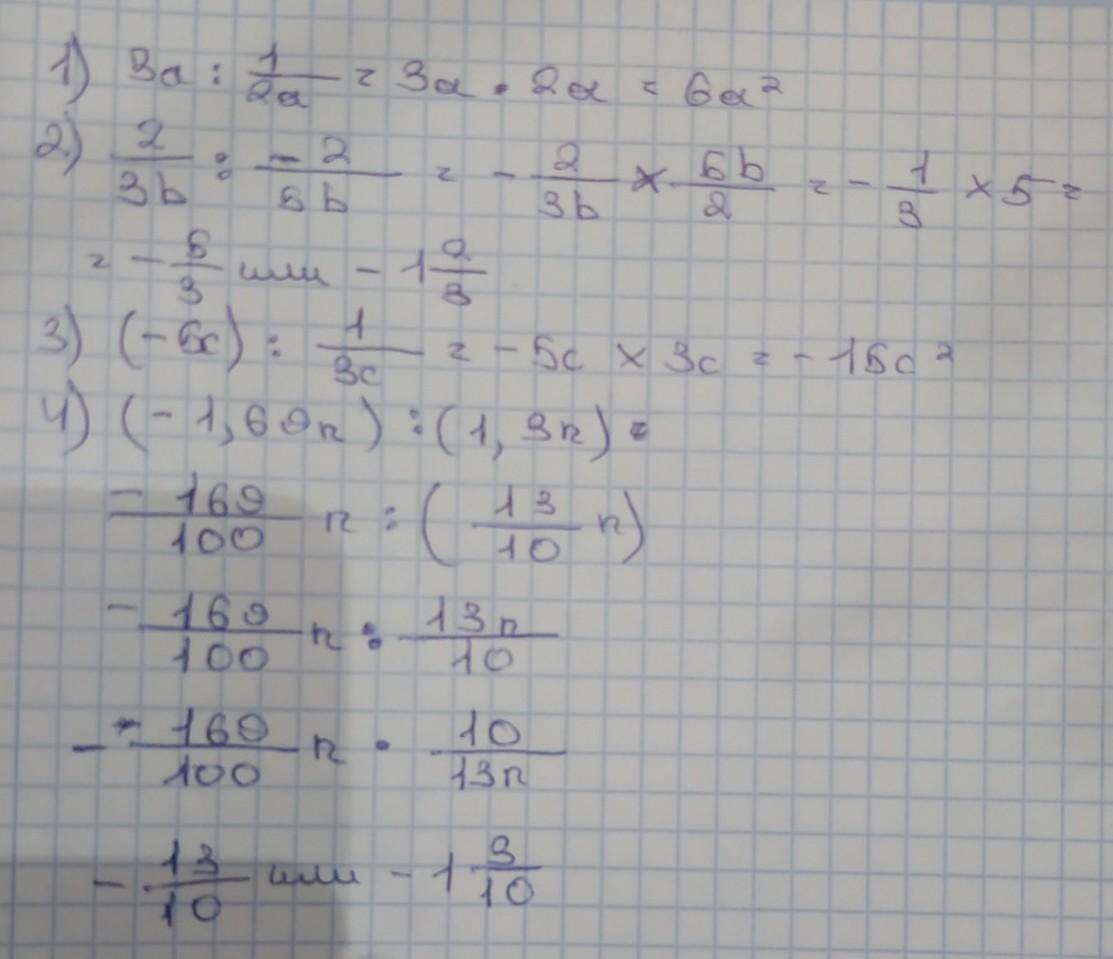 1) 3a : 1/2a = 3a · 2a = 6a²
2) 2/3b : -2/5b = - 2/3b × 5b/2 = - 1/3 × 5 =
= - 5/3 или - 1 2/3
3) (-5c) : 1/3c = -5c × 3c = -15c²
4) (-1,69n) : (1,3n) =
- 169/100 n : (13/10 n)
- 169/100 n : 13n/10
- - 169/100 n · 10/13n
- 13/10 или - 1 3/10